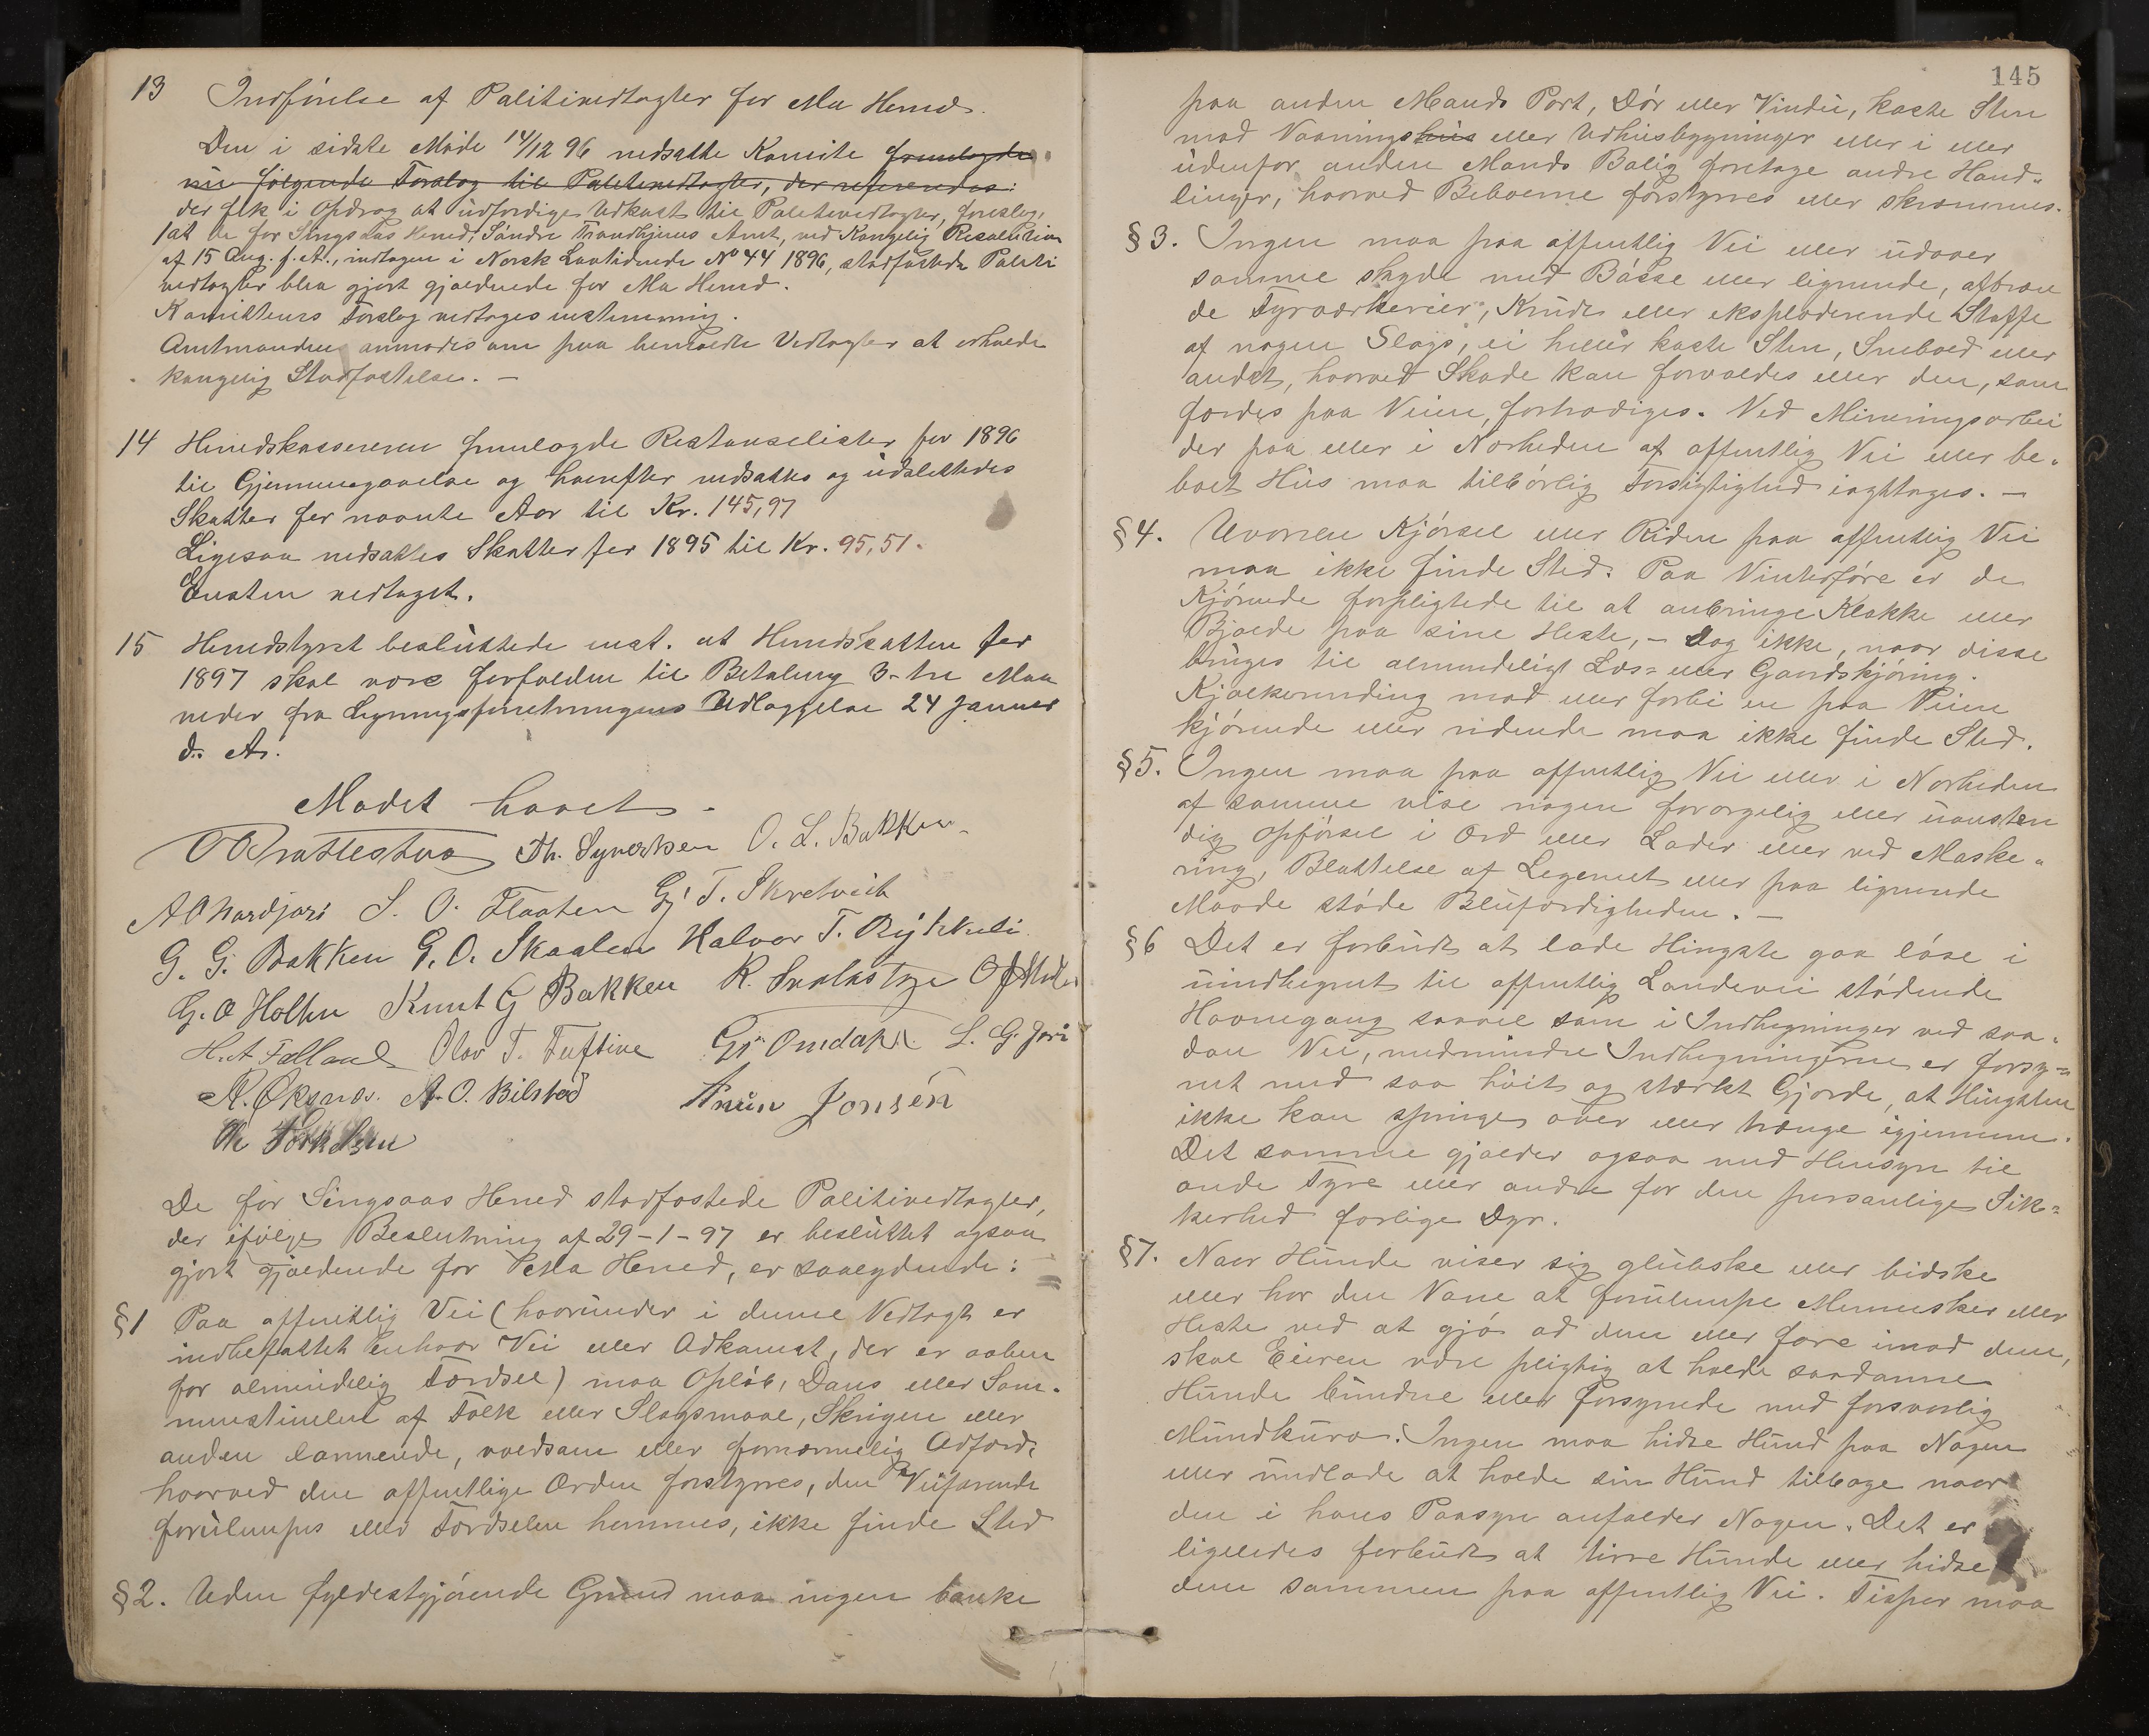 13 Indførelse af Politivedtægter for Mo Herred.
Den i sidste Møde 14/12 96 nedsatte Komite fremlagde
nu følgende Forslag til Politivedtægter, der refereredes:
der fik i Opdrag at udfærdige Udkast til Politivedtægter, foreslog,
at de for Singsaas Herred, Søndre Trondhjems Amt, ved Kongelig Resolution
af 15 Aug. f. A., indtagen i Norsk Lovtidende No 44 1896, stadfæstede Politi
vedtægter blev gjort gjældende for Mo Herred.
Komiteens Forslag vedtages enstemmig.
Amtmanden anmodes om paa bemeldte Vedtægter at erholde
kongelig Stadfæstelse. —
14 Herredskassereren fremlagde Restanselister for 1896
til Gjennemgaaelse og herefter nedsattes og udslettedes
Skatter for nævnte Aar til Kr. 145,97
Ligesaa nedsattes Skatter for 1895 til Kr. 95,51.
Enstem vedtaget.
15 Herredstyret besluttede enst. at Herredskatten for
1897 skal være forfalden til Betaling 3-tre Maa
neder fra Ligningsforretningens Udlæggelse 24 Januar
d. A.
Mødet hævet.
Th. Syvertsen O. L. Bakken
S. O. Flaaten Gj. T. Skretveit
G. G. Bakken G. O. Skaalen Halvor T.
G. O Holten Knut G Bakken R.
H. A. Felland Olav T. Tuftine Gr. Omdahl
A. O. Bilstad Jonsen
De for Singsaas Herred stadfæstede Politivedtægter,
der ifølge Beslutning af 29-1-97 er besluttet ogsaa
gjort gjældende for Herred, er saalydende:
§1 Paa offentlig Vei (hvorunder i denne Vedtægt er
indbefattet enhver Vei eller Adkomst, der er aaben
for almindelig Færdsel) maa Opløb, Dans eller Sam-
menstimlen af Folk eller Slagsmaal, Skrigen eller
anden larmende, voldsom eller fornærmelig Adfærd,
hvorved den offentlige Orden forstyrres, den Veifarende
forulempes eller Færdselen hemmes, ikke finde Sted
§2. Uden fyldestgjørende Grund maa ingen banke
145
paa anden Mands Port, Dør eller Vindu, kaste Sten
mod Vaaningshus eller Udhusbygninger eller i eller
udenfor anden Mands Bolig foretage andre Hand-
linger, hvorved Beboerne forstyrres eller skræmmes.
§3. Ingen maa paa offentlig Vei eller udover
samme skyde med Bøsse eller lignende, afbræn
de Fyrværkerier, Krudt eller eksploderende Stoffe
af nogen Slags, ei heller kaste Sten, Snebold eller
andet, hvorved Skade kan forvoldes eller den, som
færdes paa Veien, forhædiges. Ved Mineringsarbei
der paa eller i Nærheden af offentlig Vei eller be-
boet Hus maa tilbørlig Forsigtighed iagttages. —
§4. Uvorren Kjørsel eller Riden paa offentlig Vei
maa ikke finde Sted. Paa Vinterføre er de
Kjørende forpligtede til at anbringe Klokke eller
Bjælde paa sine Heste, — Dog ikke, naar disse
bruges til almindeligt Læs- eller Gaardskjøring.
Kjælkerending mod eller forbi en paa Veien
kjørende eller ridende maa ikke finde Sted.
§5. Ingen maa paa offentlig Vei eller i Nærheden
af samme vise nogen forargelig eller uansten
dig Opførsel i Ord eller Lader eller ved Maske-
ring, Blottelse af Legemet eller paa lignende
Maade støde Blufærdigheden. —
§6 Det er forbudt at lade Hingste gaa løse i
uindhegnet til offentlig Landevei stødende
Havnegang saavel som i Indhegninger ved saa-
dan Vei, medmindre Indhegningerne er forsy-
net med saa høit og stærkt Gjærde, at Hingsten
ikke kan springe over eller trænge igjennem.
Det samme gjælder ogsaa med Hensyn til
onde Tyre eller andre for den personlige Sik-
kerhed farlige Dyr.
§7. Naar Hunde viser sig glubske eller bidske
eller har den Vane at forulempe Mennesker eller
Heste ved at gjø ad dem eller fare imod dem,
skal Eieren være pligtig at holde saadanne
Hunde bundne eller forsynede med forsvarlig
Mundkurv. Ingen maa hidse Hund paa Nogen
eller undlade at holde sin Hund tilbage naar
den i hans Paasyn anfalder Nogen. Det er
ligeledes forbudt at tirre Hunde eller hidse
dem sammen paa offentlig Vei. Tisper maa